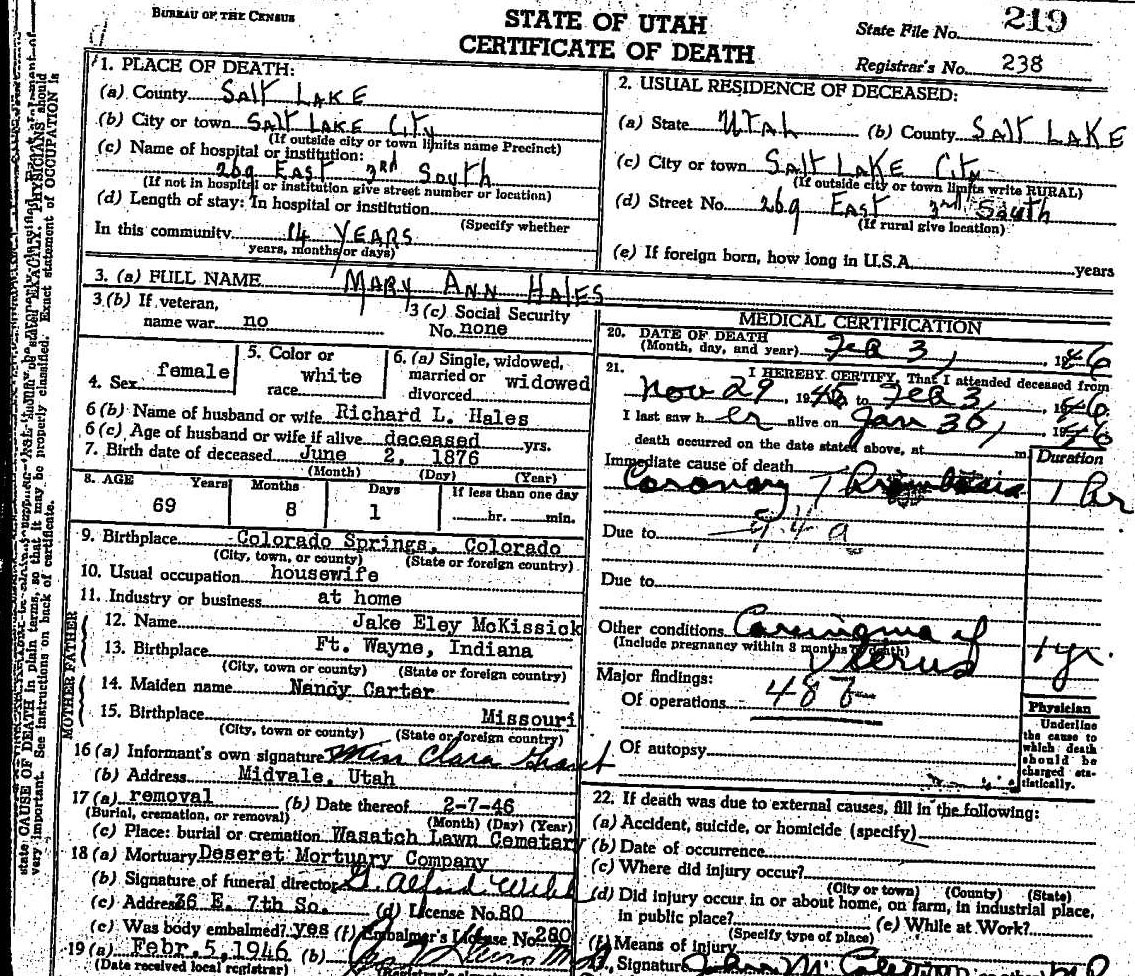 BUREAU OF THE CENSUS
STATE OF UTAH
CERTIFICATE OF DEATH
State File No. 219
Registrar's No. 238
1. PLACE OF DEATH:
(a) County SALT LAKE
(b) City or town SALT LAKE CITY
(If outside city or town limits name Precinct)
(c) Name of hospital or institution:
269 EAST 3RD SOUTH
(If not in hospital or institution give street number or location)
(d) Length of stay: In hospital or institution
(Specify whether
In this community 14 YEARS
years, months or days)
2. USUAL RESIDENCE OF DECEASED:
(a) State UTAH (b) County SALT LAKE
(c) City or town SALT LAKE CITY
(If outside city or town limits write RURAL)
(d) Street No. 269 EAST 3rd South
(If rural give location)
(e) If foreign born, how long in U.S.A. years
3. (a) FULL NAME MARY ANN HALES
3.(b) If veteran,
name war no
3(c) Social Security
No. none
4. Sex female
5. Color or
race white
6. (a) Single, widowed,
married or widowed
divorced
6(b) Name of husband or wife Richard L. Hales
6(c) Age of husband or wife if alive deceased yrs.
7. Birth date of deceased June 2, 1876
(Month) (Day) (Year)
8. AGE Years Months Days If less than one day
69 8 1 hr. min.
9. Birthplace Colorado Springs, Colorado
(City, town, or county) (State or foreign country)
10. Usual occupation housewife
11. Industry or business at home
FATHER
12. Name Jake Eley McKissick
13. Birthplace Ft. Wayne, Indiana
(City, town or county) (State or foreign country)
MOTHER
14. Maiden name Nancy Carter
15. Birthplace Missouri
(City, town or county) (State or foreign country)
16(a) Informant's own signature Miss Clara Grant
(b) Address Midvale, Utah
17(a) removal (b) Date thereof 2-7-46
(Burial, cremation, or removal) (Month) (Day) (Year)
(c) Place: burial or cremation Wasatch Lawn Cemetery
18(a) Mortuary Deseret Mortuary Company
(b) Signature of funeral director
(c) Address 36 E. 7th So. (d) License No. 80
(e) Was body embalmed? yes (f) Embalmer's License No. 280
19(a) Febr. 5, 1946 (b)
(Date received local registrar)
MEDICAL CERTIFICATION
20. DATE OF DEATH
(Month, day, and year) Feb 3, 1946
21. I HEREBY CERTIFY, That I attended deceased from
Nov 29, 1945 to Feb 3, 1946
I last saw her alive on Jan 30, 1946
death occurred on the date stated above, at m
Duration
Immediate cause of death
Coronary Thrombosis 1 hr
Due to 94a
Due to
Other conditions Carcinoma of
(Include pregnancy within 3 months of death)
Uterus 1 yr.
Major findings:
Of operations 48b
Of autopsy
Physician
Underline
the cause to
which death
should be
charged sta-
tistically.
22. If death was due to external causes, fill in the following:
(a) Accident, suicide, or homicide (specify)
(b) Date of occurrence
(c) Where did injury occur?
(City or town) (County) (State)
(d) Did injury occur in or about home, on farm, in industrial place,
in public place? (e) While at Work?
(Specify type of place)
(f) Means of injury
Signature
PHYSICIANS should
state CAUSE OF DEATH in plain terms, so that it may be properly classified. Exact statement of OCCUPATION is
very important. See instructions on back of certificate.